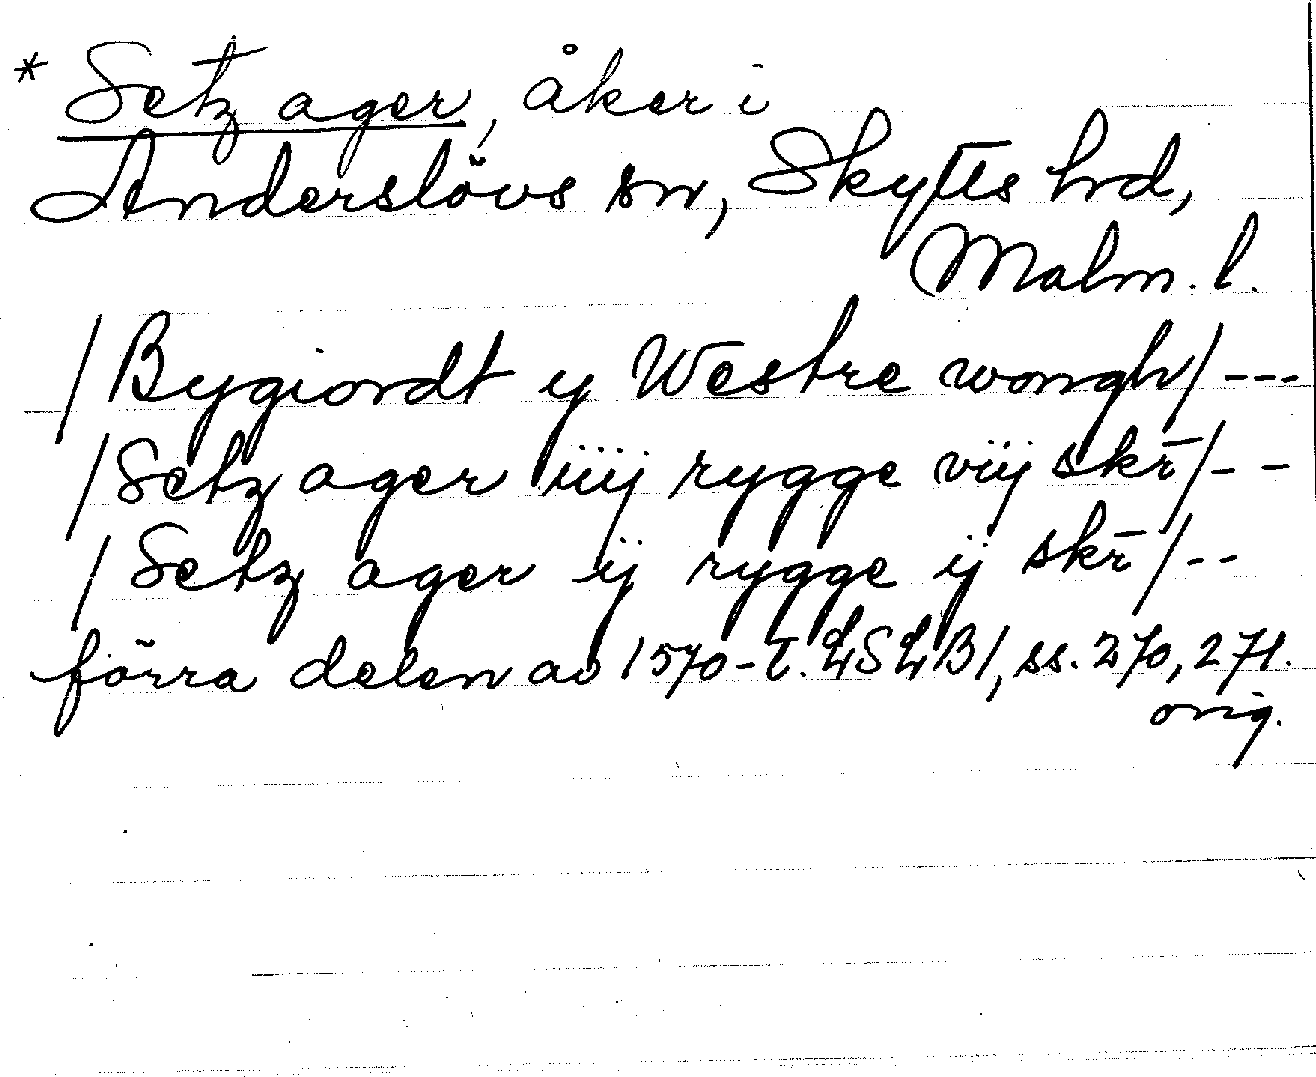 * Setz ager, åker i
Anderslövs sn, Skytts hd,
Malm. l.
/Bygiordt y Westre wongh/ ---
/Setz ager iiij rygge viij skr̄/ --
/Setz ager ij rygge ij skr̄/ --
förra delen av 1570-t. LSLB1, ss. 270, 271.
orig.